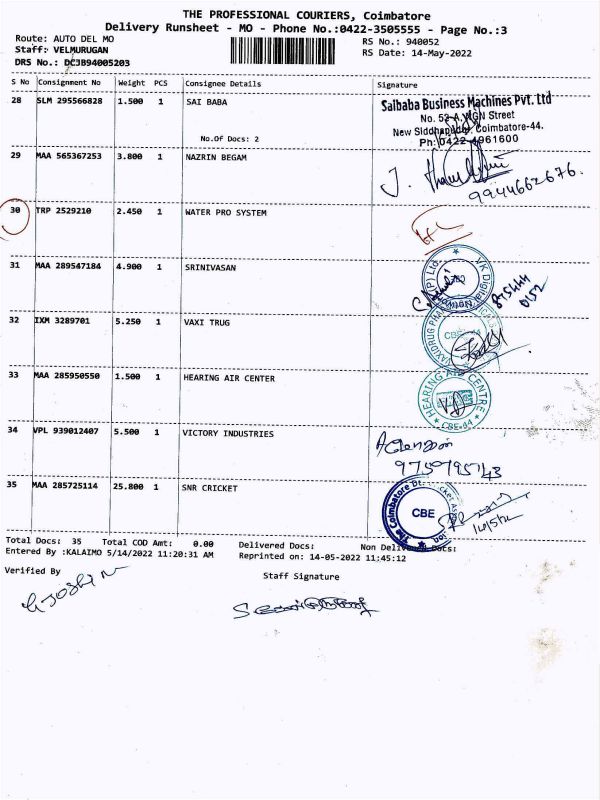 THE PROFESSIONAL COURIERS, Coimbatore
Delivery Runsheet - MO - Phone No.:0422-3505555 - Page No.:3
Route: AUTO DEL MO
RS No.: 940052
Staff: VELMURUGAN
RS Date: 14-May-2022
DRS No.: DCJB94005203
S No Consignment No Weight PCS Consignee Details Signature
28 SLM 295566828 1.500 1 SAI BABA
No.Of Docs: 2
Saibaba Business Machines Pvt. Ltd
No. 52-A, VGN Street
New Siddhapudur, Coimbatore-44.
Ph: 0422-4961600
29 MAA 565367253 3.800 1 NAZRIN BEGAM
9944662676.
30 TRP 2529210 2.450 1 WATER PRO SYSTEM
31 MAA 289547184 4.900 1 SRINIVASAN
VK Digital (P) Ltd
32 IXM 3289701 5.250 1 VAXI TRUG
CBE-44
33 MAA 285950550 1.500 1 HEARING AIR CENTER
HEARING AID CENTRE
CBE-44
34 VPL 939012407 5.500 1 VICTORY INDUSTRIES
9759795743
35 MAA 285725114 25.800 1 SNR CRICKET
The Coimbatore
CBE
14/5/22
Total Docs: 35 Total COD Amt: 0.00 Delivered Docs: Non Delivered Docs:
Entered By :KALAIMO 5/14/2022 11:20:31 AM Reprinted on: 14-05-2022 11:45:12
Verified By
Staff Signature